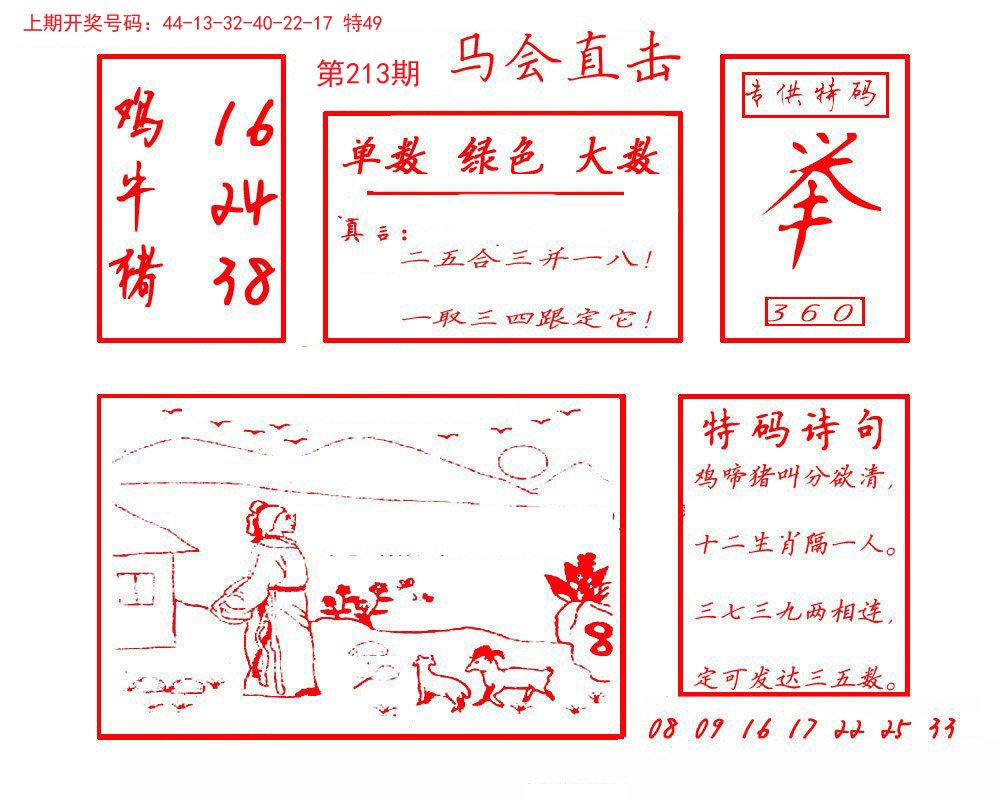 上期开奖号码：44-13-32-40-22-17 特49
第213期 马会直击
鸡 16
牛 24
猪 38
单数 绿色 大数
真言：
二五合三并一八！
一取三四跟定它！
专供特码
举
360
8
特码诗句
鸡啼猪叫分欲清，
十二生肖隔一人。
三七三九两相连，
定可发达三五数。
08 09 16 17 22 25 33